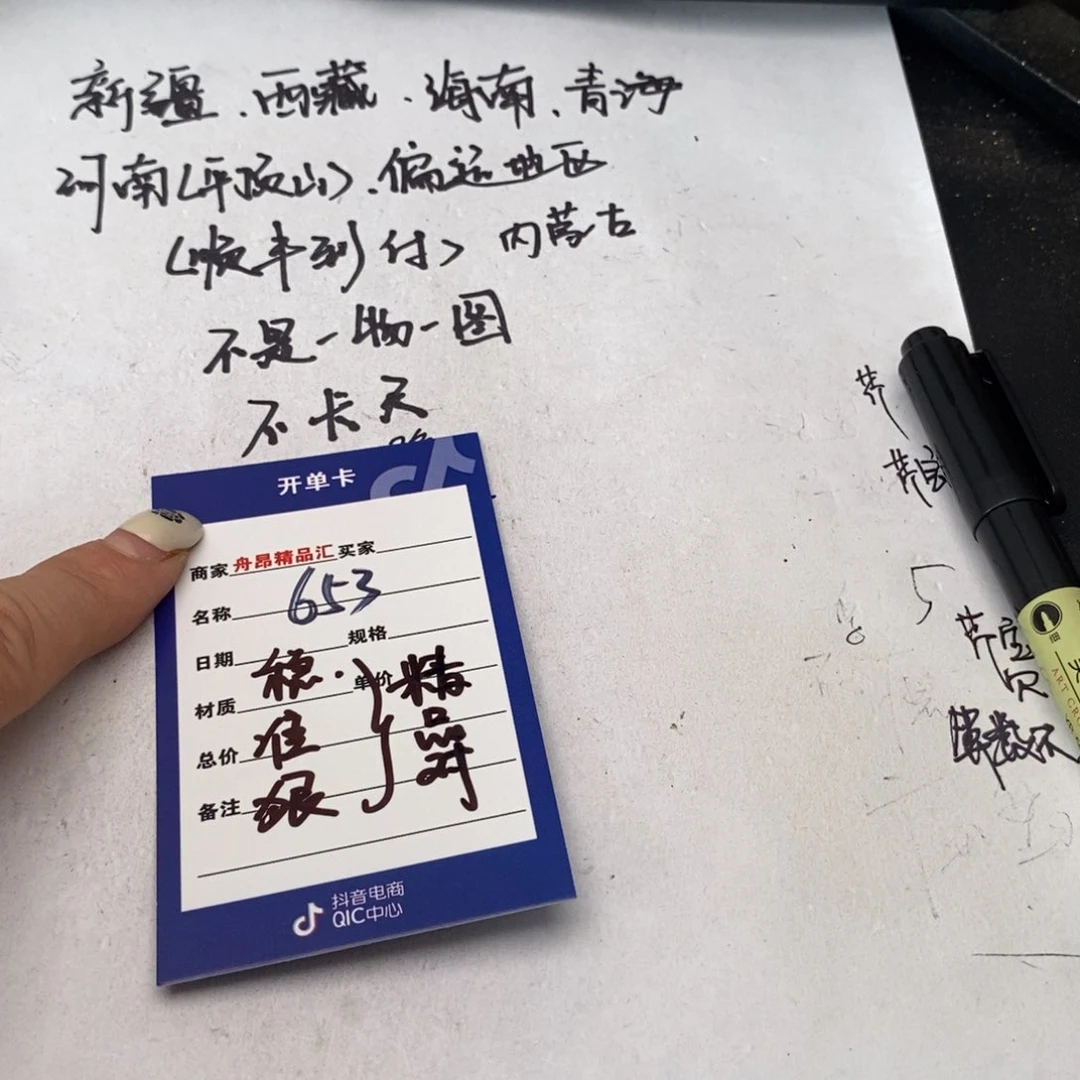 新疆、西藏、海南、青海
河南(平顶山)、偏远地区
(顺丰到付) 内蒙古
不是一物一图
不卡天
开单卡
商家 舟昂精品汇 买家
名称 653
规格
日期 稳、
单价 精
材质
品
总价 准
备注 狠
抖音电商
QIC中心